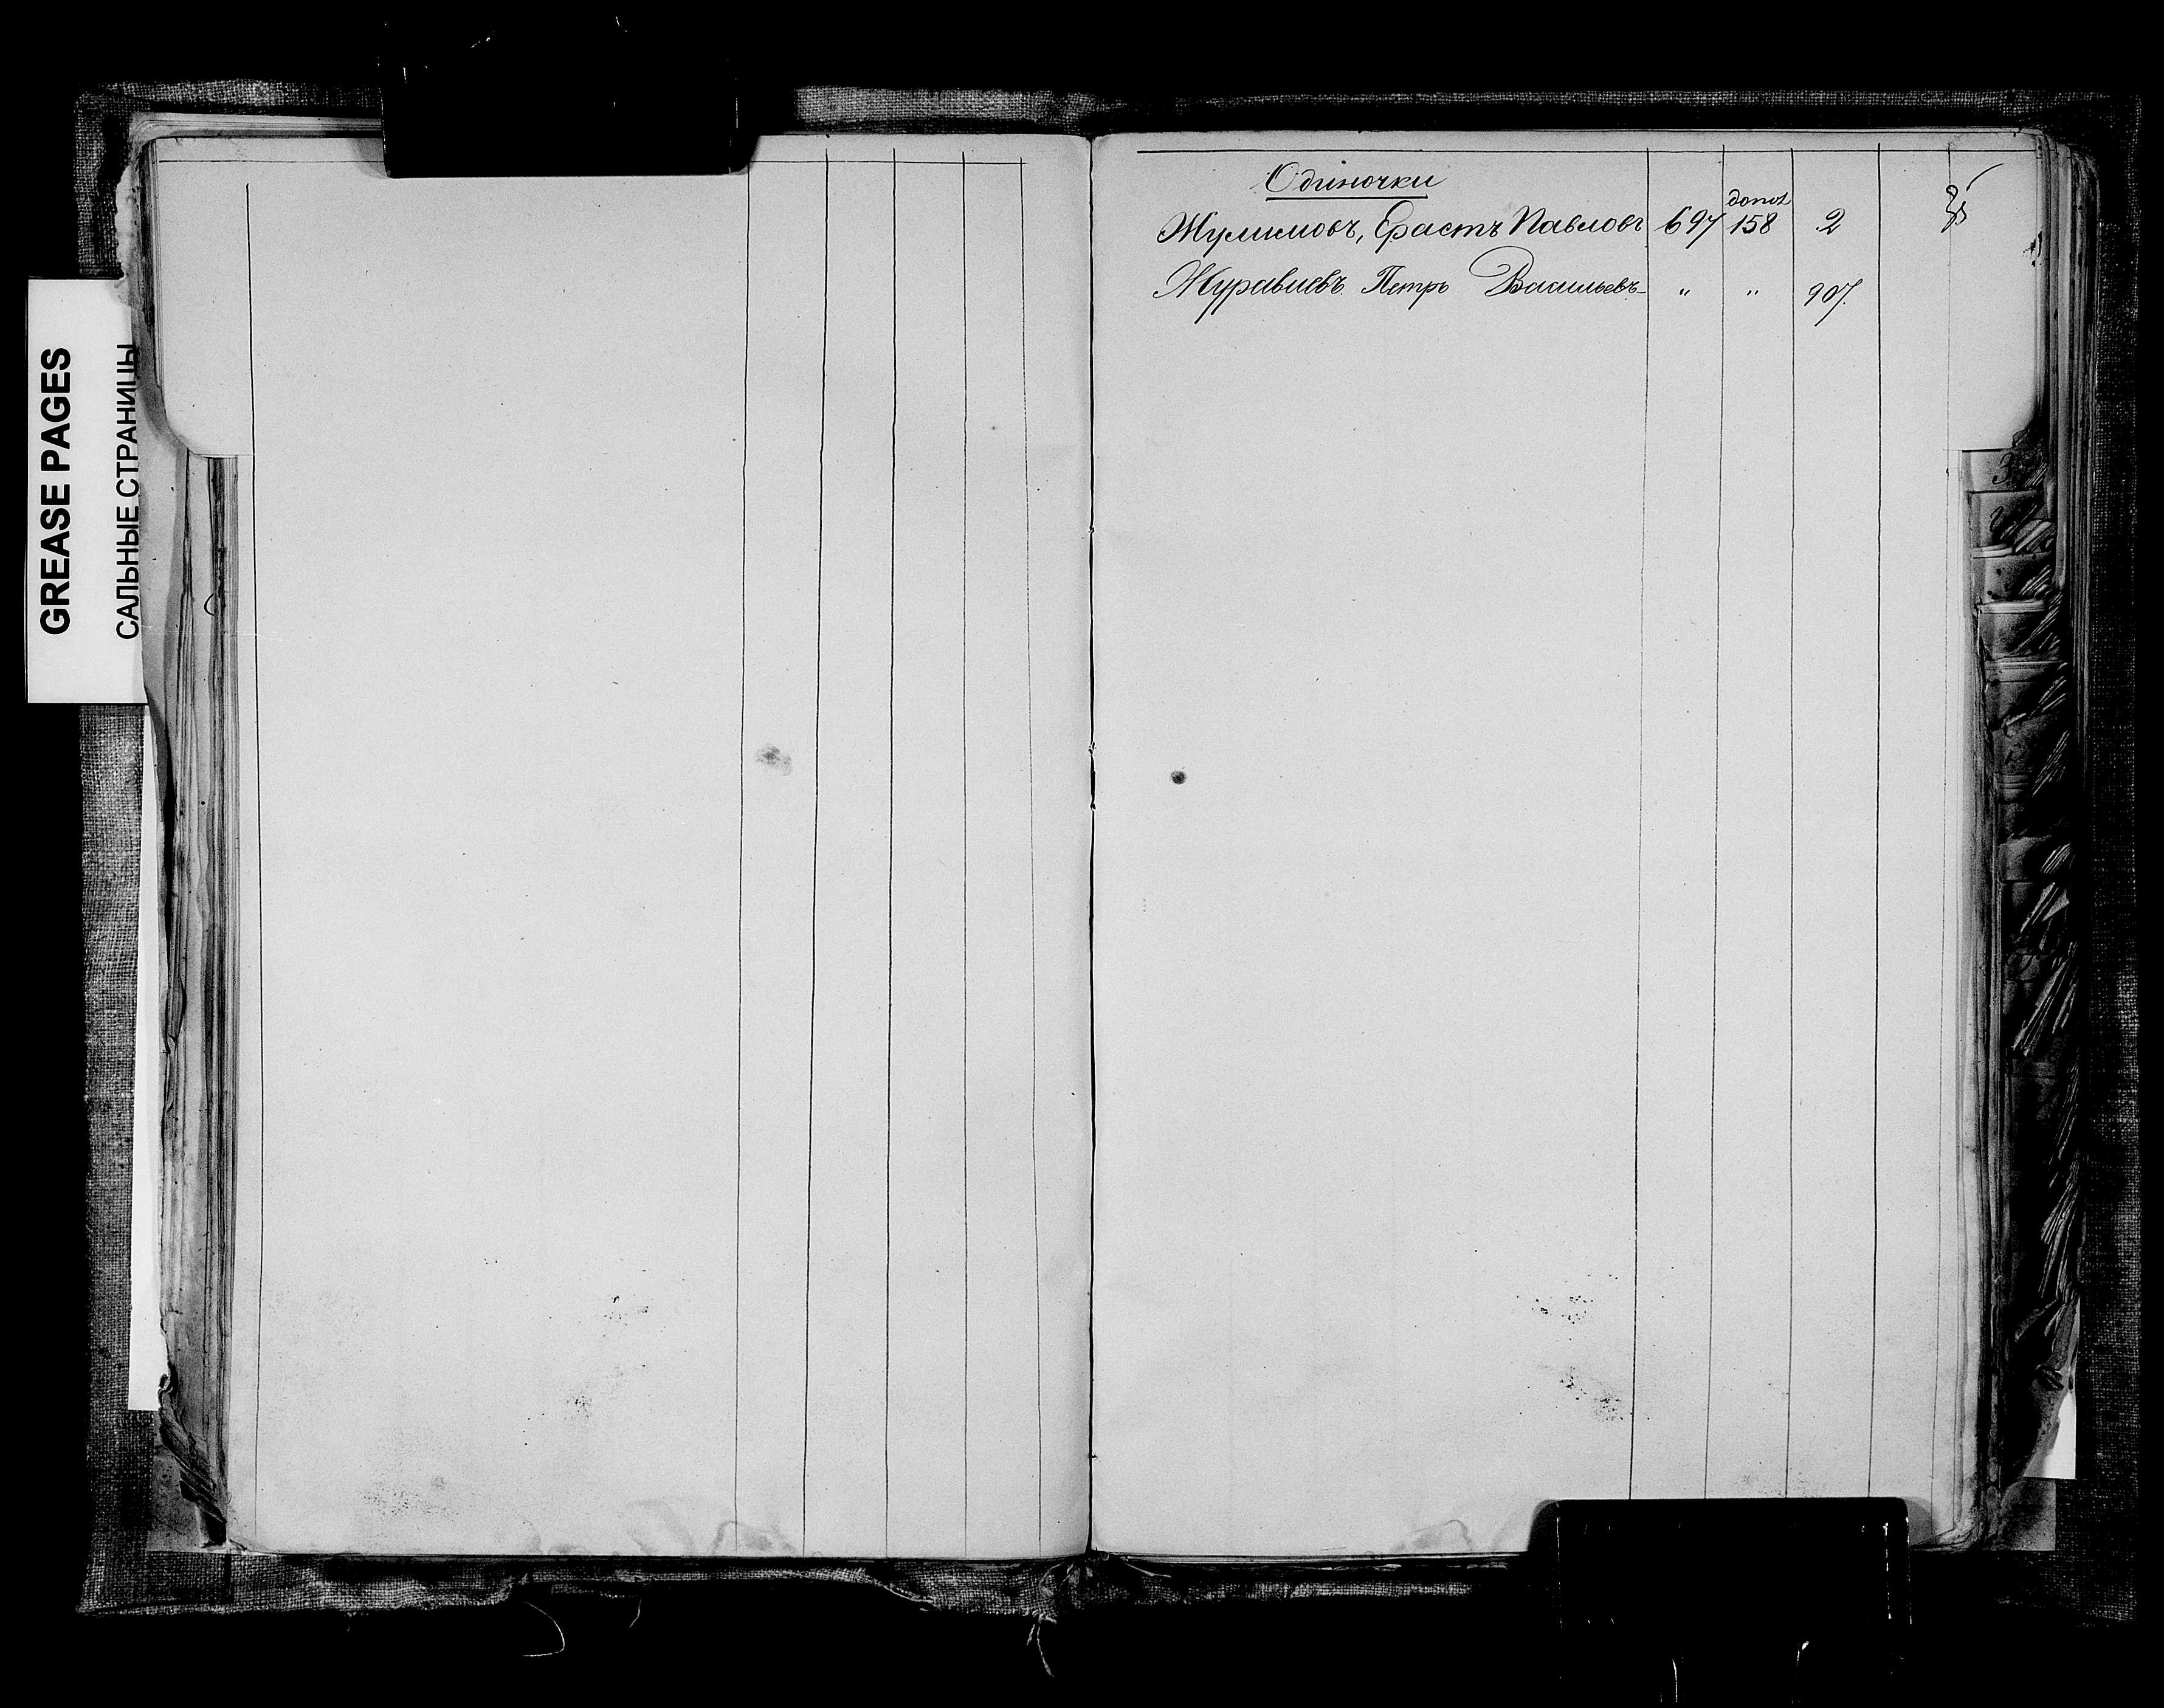 GREASE PAGES
САЛЬНЫЕ СТРАНИЦЫ
Одиночки
Жулимовъ, Ерастъ Павловъ 697 допол 158 2
Журавлевъ Петръ Васильевъ " " 907.